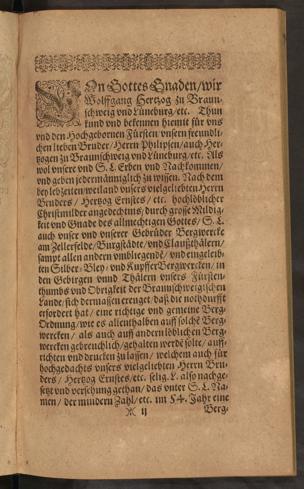 VOn Gottes Gnaden/ wir
Wolffgang Hertzog zu Braun-
schweig vnd Lüneburg/ etc. Thun
kund vnd bekennen hiemit für vns
vnd den Hochgebornen Fürsten vnsern freundli-
chen lieben Bruder/ Herrn Philipsen/ auch Her-
tzogen zu Braunschweig vnd Lüneburg/ etc. Als
wol vnsere vnd S. L. Erben vnd Nachkommen/
vnd geben jedermänniglich zu wissen. Nach dem
bey lebzeiten/ weiland vnsers vielgeliebten Herrn
Bruders/ Hertzog Ernstes/ etc. hochlöblicher
Christmilder angedechtnis/ durch grosse Mildig-
keit vnd Gnade des allmechtigen Gottes/ S. L.
auch vnser vnd vnserer Gebrüder Bergwercke
am Zellerfelde/ Burgstädte/ vnd Claußthälern/
sampt allen andern vmbliegende/ vnd eingeleib-
ten Silber- Bley- vnd Kupffer Bergwercken/ in
den Gebirgen vnnd Thälern vnsers Fürsten-
thumbs vnd Obrigkeit der Braunschweigischen
Lande/ sich dermassen erzeuget/ daß die nothdurfft
erfordert hat/ eine richtige vnd gemeine Berg-
Ordnung/ wie es allenthalben auff solche Berg-
wercken/ als auch auff andern löblichen Berg-
wercken gebreuchlich/ gehalten werde solte/ auff-
richten vnd drucken zu lassen/ welchem auch für
hochgedachts vnsers vielgeliebten Herrn Bru-
ders/ Hertzog Ernstes/ etc. selig. L. also nachge-
setzt vnd versehung gethan/ das vnter S. L. Na-
men/ der mindern Zahl/ etc. im 54. Jahr eine
A ij Berg-